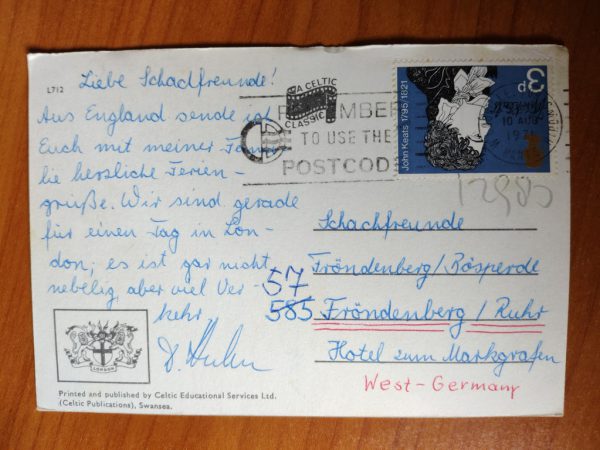 L712
Liebe Schachfreunde!
Aus England sende ich
Euch mit meiner Fami-
lie herzliche Ferien-
grüße. Wir sind gerade
für einen Tag in Lon-
don; es ist gar nicht
nebelig, aber viel Ver-
kehr,
LONDON
Printed and published by Celtic Educational Services Ltd.
(Celtic Publications), Swansea.
A CELTIC
CLASSIC
MBER
TO USE THE
POSTCOD
10 AUG
1971
John Keats 1795/1821
3p
Schachfreunde
Fröndenberg/Rösperde
57
585 Fröndenberg / Ruhr
Hotel zum Markgrafen
West-Germany